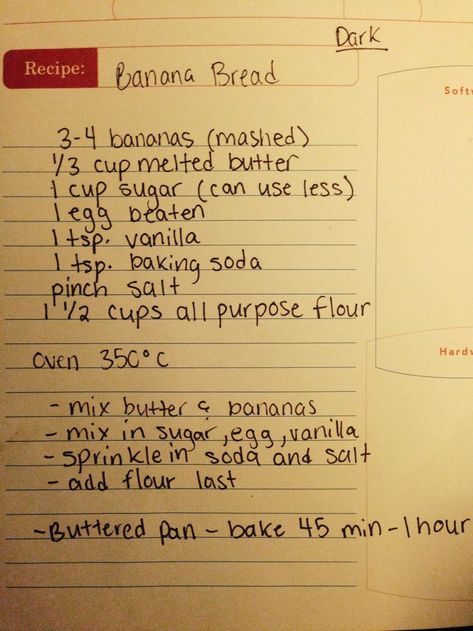 Dark
Recipe: Banana Bread
Softw
3-4 bananas (mashed)
1/3 cup melted butter
1 cup sugar (can use less)
1 egg beaten
1 tsp. vanilla
1 tsp. baking soda
pinch salt
1 1/2 cups all purpose flour
Hardw
oven 350°C
- mix butter & bananas
- mix in sugar, egg, vanilla
- sprinkle in soda and salt
- add flour last
- Buttered pan - bake 45 min - 1 hour